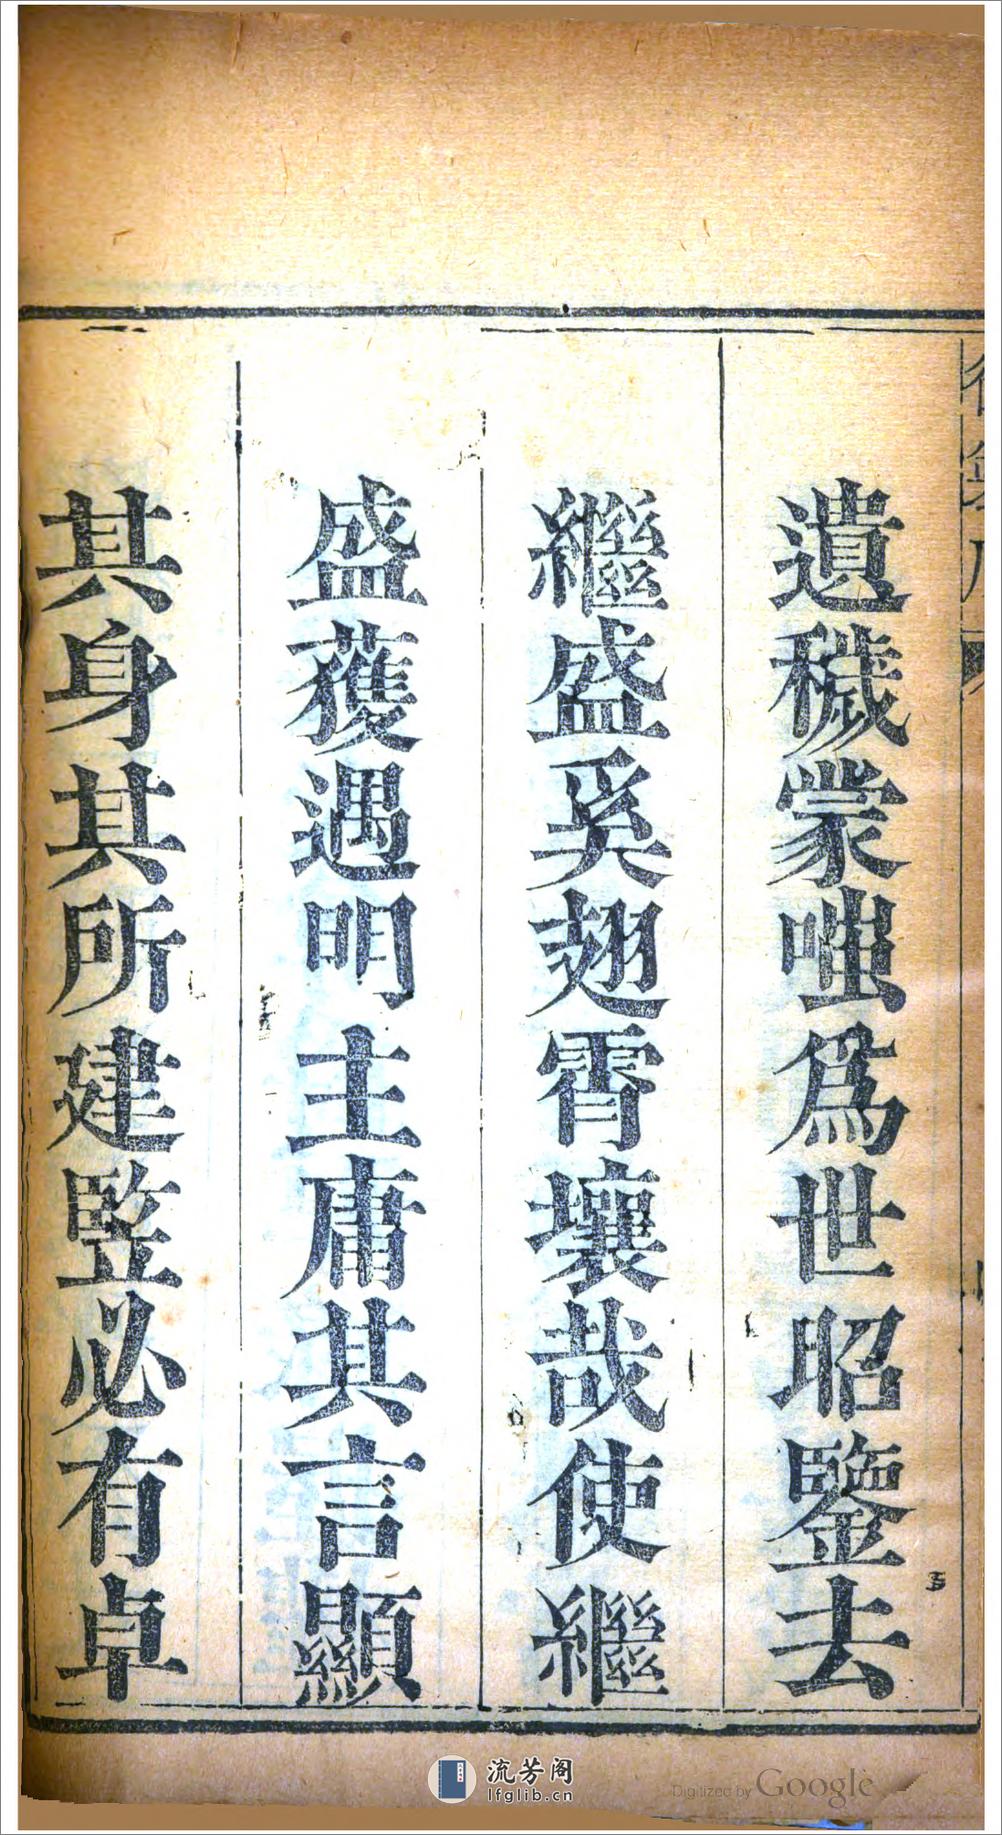 遺穢蒙嗤爲世昭鑒去
繼盛奚翅霄壤哉使繼
盛獲遇明主庸其言顯
其身其所建竪必有卓
流芳阁
lfglib.cn
Digitized by Google